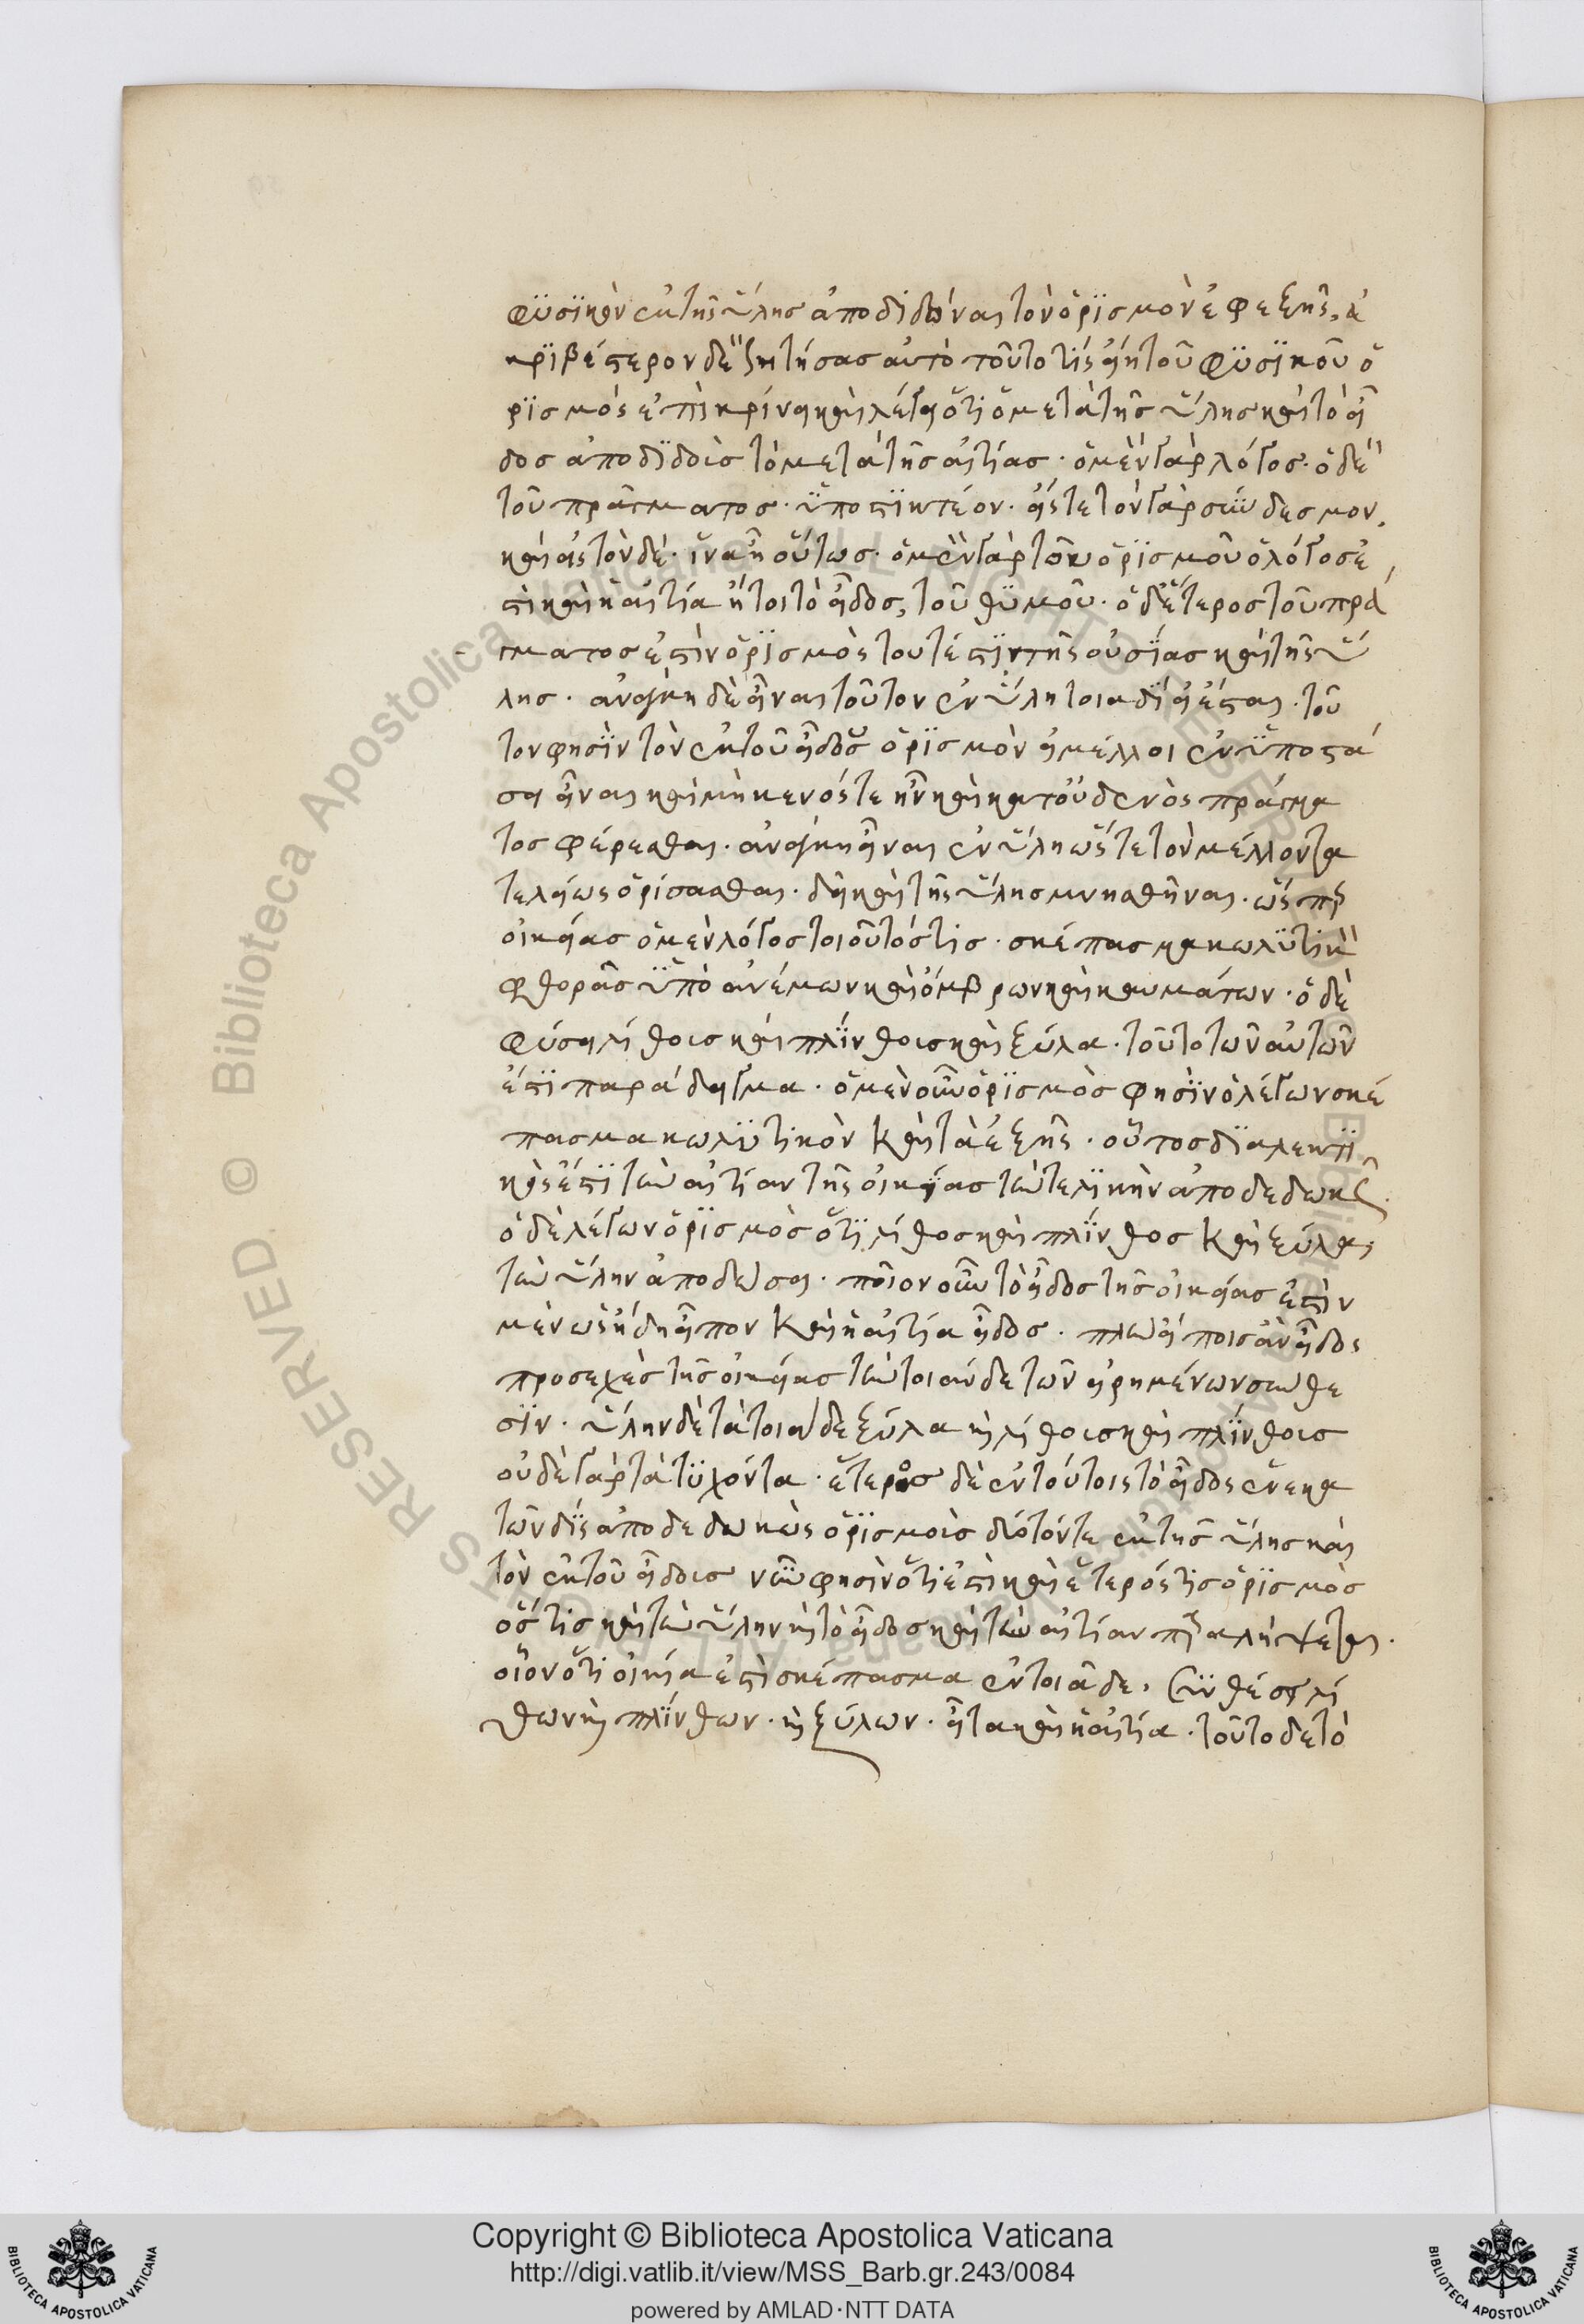 φϋσϊκὸν ἐκ τῆς ὕλης ἀποδιδόναι τὸν ὁρϊσμὸν ἐφεξῆς, ἀ
κρϊβέστερον δὲ ζητήσας αὐτὸ τοῦτο τίς εἴη τοῦ φϋσϊκοῦ ὁ
ρϊσμός ἐπικρίνει καὶ λέγει ὅτι ὁ μετὰ τῆς ὕλης καὶ τὸ εἶ
δος ἀποδϊδοὺς τὸ μετὰ τῆς αἰτίας · ὁ μὲν γὰρ λόγος · ὁ δὲ
τοῦ πράγματος · ὑποστικτέον · εἴς τε τὸν γὰρ σύνδεσμον,
καὶ εἰς τὸν δέ · ἵνα ἦ οὕτως · ὁ μὲν γὰρ τῶν ὁρϊσμοῦ ὁ λόγος ἐ
στὶ καὶ ἡ αἰτία ἤτοι τὸ εἶδος, τοῦ θϋμοῦ · ὁ δ' ἕτερος τοῦ πρά
γματος ἐστὶν ὁρϊσμὸς τουτέστϊν τῆς οὐσίας καὶ τῆς ὕ
λης · ἀνάγκη δὲ εἶναι τοῦτον ἐν ὕλη τοιαδὶ εἰ ἔσται · τοῦ
τον φησὶν τὸν ἐκ τοῦ εἴδους ὁρϊσμὸν εἰ μέλλοι ἐν ὑποστά
σει εἶναι καὶ μὴ κενός τε ἦν καὶ κατ' οὐδενὸς πράγμα
τος φέρεσθαι · ἀνάγκη εἶναι ἐν ὕλη ὥστε τὸν μέλλοντα
τελείως ὁρίσασθαι · δεῖ καὶ τῆς ὕλης μνησθῆναι · ὥσπερ
οἰκείας ὁ μὲν λόγος τοιοῦτός τις · σκέπασμα κωλϋτικὸν
φθορᾶς ὑπὸ ἀνέμων καὶ ὄμβρων καὶ καυμάτων · ὁ δὲ
φύσει λίθοις καὶ πλϊνθοις καὶ ξύλα · τοῦτο τῶν αὐτῶν
ἐστϊ παράδειγμα · ὁ μὲν οὖν ὁρϊσμὸς φησὶν ὁ λέγων σκέ
πασμα κωλϋτικὸν καὶ τὰ ἑξῆς · οὗτος δϊαλεκτϊ
κὸς ἐστϊ τὴν αἰτίαν τῆς οἰκείας τὴν τελϊκὴν ἀποδεδωκώς ·
ὁ δὲ λέγων ὁρϊσμὸς ὅτι λίθος καὶ πλϊνθος καὶ ξύλα,
τὴν ὕλην ἀποδώσει · ποῖον οὖν τὸ εἶδος τῆς οἰκείας ἐστὶν
μὲν ὡς ἤδη εἶπον καὶ ἡ αἰτία εἶδος · πλὴν εἴποις ἂν εἶδος
προσεχὲς τῆς οἰκείας τὴν τοιάνδε τῶν εἰρημένων σύνθε
σϊν · ὕλην δὲ τὰ τοιάδε ξύλα ἢ λίθοις καὶ πλϊνθοις
οὐδὲ γὰρ τὰ τϋχόντα · ἕτερος δὲ ἐν τούτοις τὸ εἶδος ἕνεκα
τῶν δὶς ἀποδεδωκὼς ὁρϊσμοὺς δύο τόντε ἐκ τῆς ὕλης καὶ
τὸν ἐκ τοῦ εἴδους νῦν φησὶν ὅτι ἐστὶ καὶ ἕτερός τις ὁρϊσμὸς
ὅς τις καὶ τὴν ὕλην ἢ τὸ εἶδος καὶ τὴν αἰτίαν περιλήψεται ·
οἷον ὅτι οἰκία ἐστὶ σκέπασμα ἐν τοιᾶδε, συνθέσει λί
θων ἢ πλϊνθων · ἢ ξύλων · εἶτα καὶ ἡ αἰτία · τοῦτο δὲ τὸ
Copyright © Biblioteca Apostolica Vaticana
http://digi.vatlib.it/view/MSS_Barb.gr.243/0084
powered by AMLAD·NTT DATA